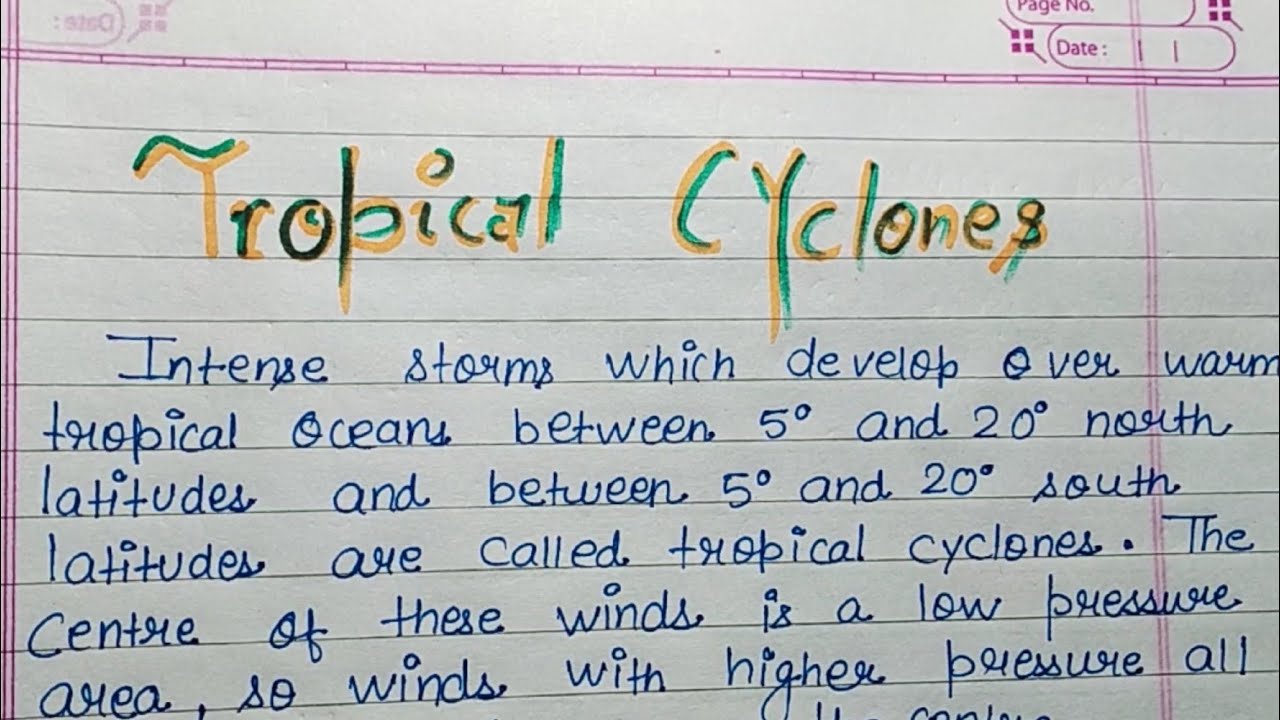 Page No.
Date :
Tropical Cyclones
Intense storms which develop over warm
tropical oceans between 5° and 20° north
latitudes and between 5° and 20° south
latitudes are called tropical cyclones. The
Centre of these winds is a low pressure
area, so winds with higher pressure all